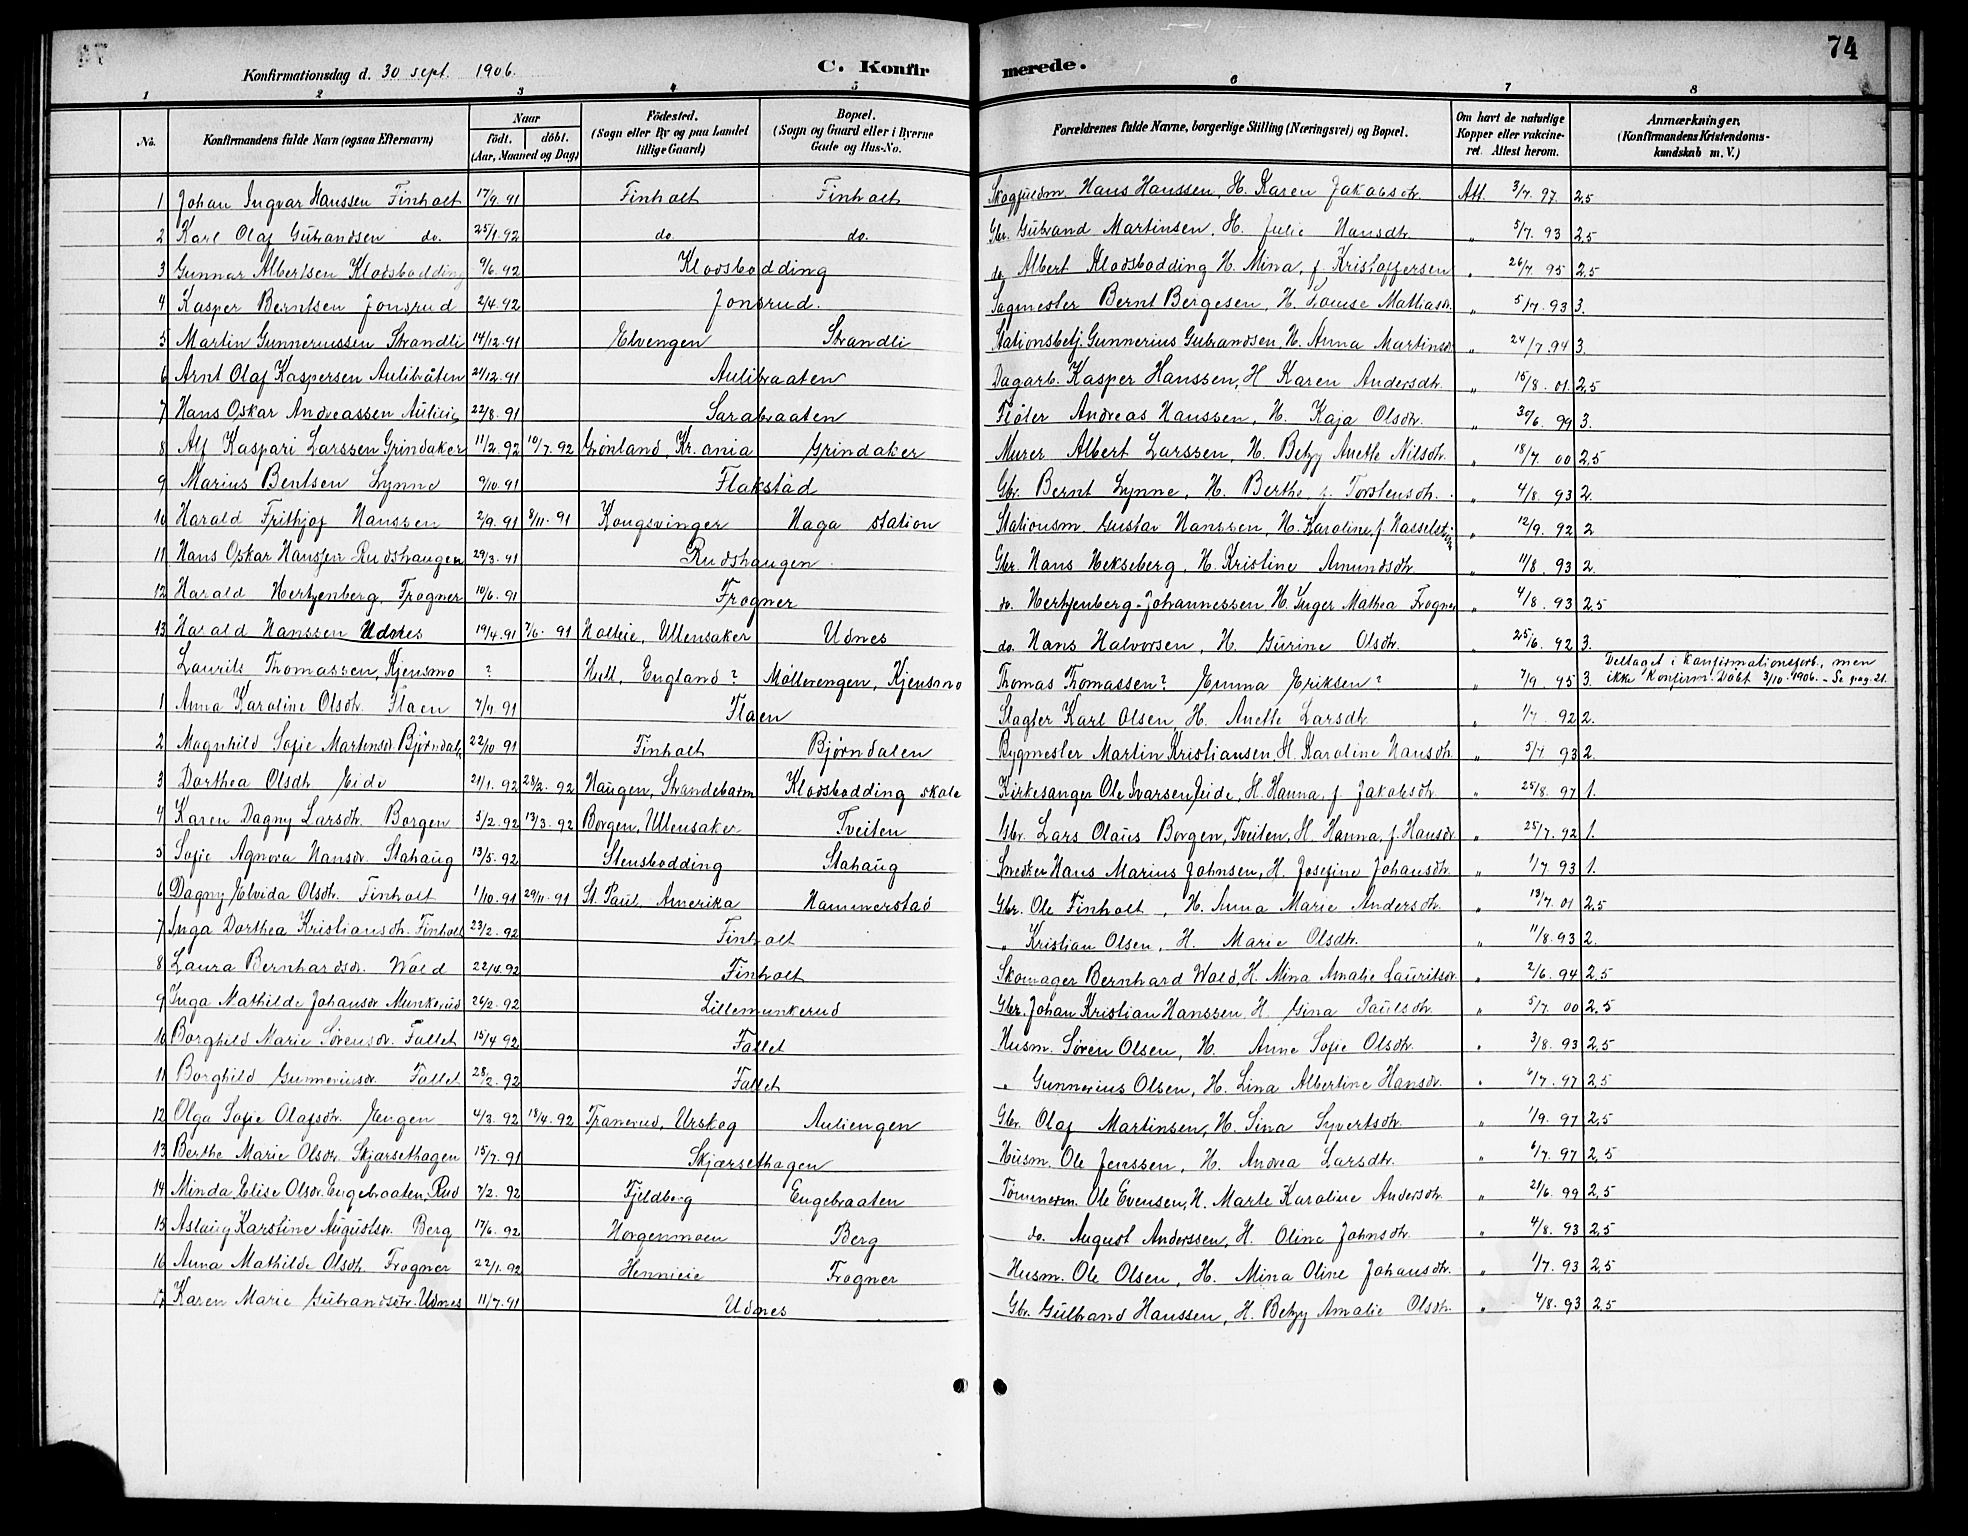 74
Konfirmationsdag d. 30 sept. 1906.
C. Konfirmerede.
1 2 3 4 5 6 7 8
No. | Konfirmandens fulde Navn (ogsaa Efternavn) | Naar født. døbt. (Aar, Maaned og Dag) | Fødested. (Sogn eller By og paa Landet tillige Gaard) | Bopæl. (Sogn og Gaard eller i Byerne Gade og Hus-No. | Forældrenes fulde Navne, borgerlige Stilling (Næringsvei) og Bopæl. | Om havt de naturlige Kopper eller vakcineret. Attest herom. | Anmærkninger, (Konfirmandens Kristendomskundskab m. V.)
1 Johan Ingvar Hanssen Finholt 17/9.91 Finholt Finholt Skogfuldm. Hans Hanssen, H. Karen Jakobsdtr. Att. 3/7. 97. 2,5
2 Karl Olaf Gutrandsen do. 25/1.92 do. do. Gbr. Gutrand Martinsen, H. Julie Hansdtr. " 5/7. 93 2,5
3 Gunnar Albertsen Klodsbodding 9/6.92 Klodsbodding do. Albert Klodsbodding H. Mina, f. Kristoffersen " 26/7. 95 2,5
4 Kasper Berntsen Jonsrud 2/4.92 Jonsrud. Sagmester Bernt Bergesen, H. Louise Mathiasdr. " 5/7. 93 3.
5 Martin Gunneriussen Strandli 14/12.91 Elvengen Strandli Stationsbetj. Gunnerius Gutrandsen, H. Anna Martinsdr " 24/7.94 3.
6 Arnt Olaf Kaspersen Aulibråten 21/12.91 Aulibraaten Dagarb. Kasper Hanssen, H Karen Andersdtr. " 15/8. 01. 2,5
7 Hans Oskar Andreassen Aulieie 22/8.91 Sarabraaten Fløter Andreas Hanssen, H. Kaja Olsdtr. " 30/6. 99 3.
8 Alf Kaspari Larssen Grindaker 11/2.92 10/7.92 Grønland, Kr.ania Grindaker Murer Albert Larssen, H. Betzy Anette Nilsdtr. " 18/7. 00 2,5
9 Marius Bentsen Lynne 9/10.91 Flakstad Gbr. Bernt Lynne, H. Berthe, f. Torstensdtr. " 4/8. 93 2.
10 Harald Frithjof Hanssen 2/9.91 8/11.91 Kongsvinger Haga station Stationsm. Gustav Hanssen, H. Karoline, f. " 12/9. 92 2
11 Hans Oskar Hanssen Rudshaugen 29/3.91 Rudshaugen. Gbr. Hans Hekseberg, H. Kristine Amundsdtr. " 11/8. 93 2.
12 Harald Hertzenberg, Frogner 10/6.91 Frogner do. Hertzenberg Johannessen H. Inger Mathea Frogner " 4/8. 93 2,5
13 Harald Hanssen Udnes 19/4.91 7/6. 91 Holteie, Ullensaker Udnes do. Hans Halvorsen, H. Gurine Olsdtr. " 25/6. 92 3.
Laurits Thomassen, Kjensmo ? Hull, England? Møllerengen, Kjensmo Thomas Thomassen? Emma Eriksen? " 7/9. 95 3. Deltaget i konfirmationsforb., men ikke Konfirm. Døbt 3/10.1906. – Se pag. 21.
1 Anna Karoline Olsdtr. Flaen 7/11.91 Flaen Slagter Karl Olsen, H. Anette Larsdtr. " 1/7. 92 2.
2 Magnhild Sofie Martinsdr Bjørndalen 22/10.91 Finholt Bjørndalen Bygmester Martin Kristiansen H. Karoline Hansdtr. " 5/7 93 2.
3 Dorthea Olsdtr Eide 21/1.92 28/2. 92 Haugen, Strandebarm Klodsbodding skole Kirkesanger Ole Ivarsen Eide, H. Hanna, f. Jakobsdtr. " 25/8. 97 1.
4 Karen Dagny Larsdtr. Borgen 5/2.92 13/3.92 Borgen, Ullensaker Tveiten Gbr. Lars Olaus Borgen, Tveiten, H. Hanna, f. Hansdr " 25/7. 92 1.
5 Sofie Agnora Hansdr. Stahaug 13/5.92 Stensbodding Stahaug Snedker Hans Marius Johnsen, H. Josefine Johansdtr. " 1/7 93 1.
6 Dagny Elvida Olsdtr. Finholt 1/10.91 29/11.91 St. Paul, Amerika Hammerstad Gbr. Ole Finholt, H. Anna Marie Andersdtr. " 13/7. 01 2,5
7 Inga Dorthea Kristiansdtr. Finholt 23/2.92 Finholt " Kristian Olsen, H. Marie Olsdtr. " 11/8.93 2.
8 Laura Bernhardsdr. Wold 22/4.92 Finholt Skomager Bernhard Wold, H. Mina Amalie Lauritsdr. " 2/6. 94 2,5
9 Inga Mathilde Johansdr Munkerud 26/2.92 Lillemunkerud Gbr. Johan Kristian Hanssen, H. Gina Paulsdtr. " 5/7. 00 2,5
10 Borghild Marie Sørensdr. Fallet 15/4.92 Fallet Husm. Søren Olsen, H. Anne Sofie Olsdtr. " 3/8. 93 2,5
11 Borghild Gunneriusdr. Fallet 28/2.92 Fallet " Gunnerius Olsen, H. Lina Albertine Hansdr. " 6/7. 97 2,5
12 Olga Sofie Olafsdtr. Engen 4/3.92 18/4.92 Tranerud, Urskog Auliengen Gbr. Olaf Martinsen, H. Sina Syvertsdtr. " 1/9. 97 2,5
13 Berthe Marie Olsdtr. Skjærsethagen 15/7.91 Skjærsethagen Husm. Ole Jenssen, H. Andrea Larsdtr. " 6/7. 97 2,5
14 Minda Elise Olsdr. Engebraaten, Rud 7/2.92 Fjeldberg Engebraaten Tømmerm. Ole Evensen, H. Marte Karoline Andersdtr. " 21/6. 99 2,5
15 Aslaug Karstine Augustsdr. Berg 17/6.92 Horgenmoen Berg do. August Anderssen, H. Oline Johnsdtr. " 4/8. 93 2,5
16 Anna Mathilde Olsdtr. Frogner 22/1.92 Hennieie Frogner Husm. Ole Olsen, H. Mina Oline Johansdtr. " 1/7. 93 2,5
17 Karen Marie Gutrandsdtr. Udnes 11/7.91 Udnes Gbr. Gulbrand Hanssen, H. Betzy Amalie Olsdtr. " 4/8. 93 2,5